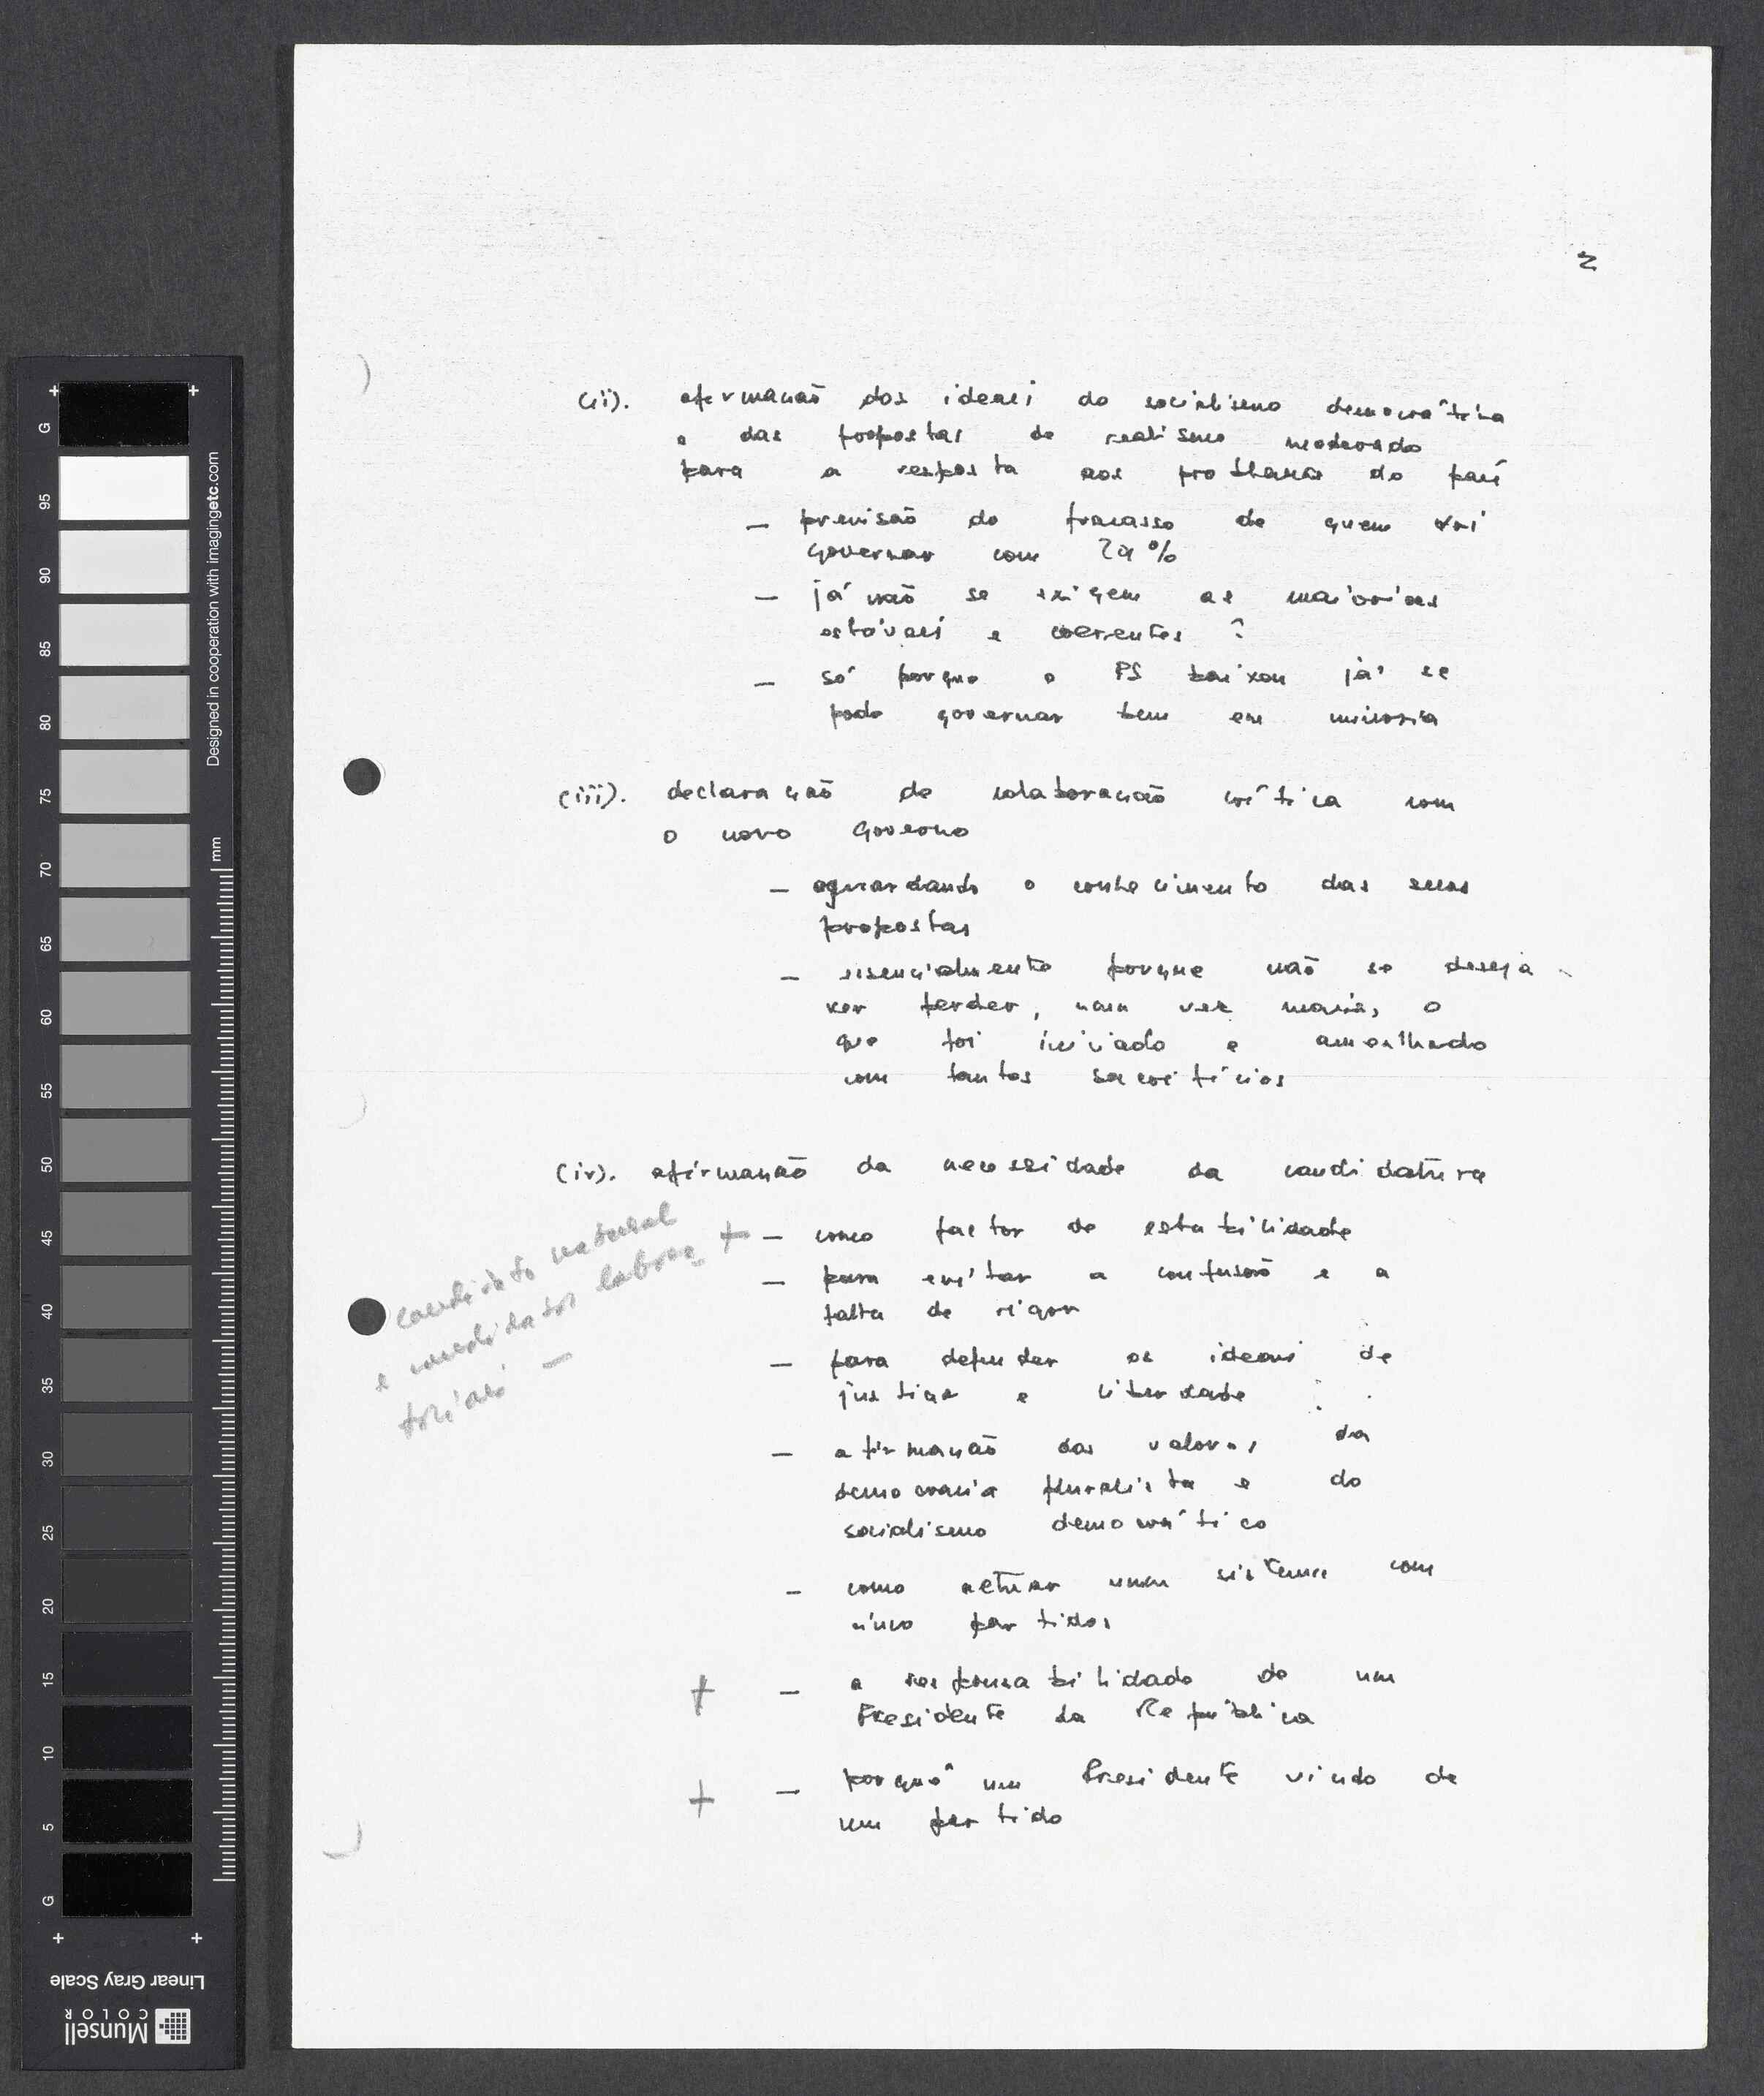 2
(ii). afirmação dos ideais do socialismo democrático
e das propostas de realismo moderado
para a resposta aos problemas do país
— previsão do fracasso de quem vai
governar com 29%
— já não se exigem as maiorias
estáveis e coerentes ?
— só porque o PS baixou já se
pode governar bem em minoria
(iii). declaração de colaboração crítica com
o novo Governo
— aguardando o conhecimento das suas
propostas
— essencialmente porque não se deseja
ver perder, uma vez mais, o
que foi iniciado e amealhado
com tantos sacrifícios
(iv). afirmação da necessidade da candidatura
candidato natural
e candidatos labora
toriais —
+ — como factor de estabilidade
— para evitar a confusão e a
falta de rigor
— para defender os ideais de
justiça e liberdade
— afirmação dos valores da
democracia pluralista e do
socialismo democrático
— como actuar num sistema com
cinco partidos
+ — a responsabilidade de um
Presidente da República
+ — porquê um Presidente vindo de
um partido
G
95
90
85
80
75
70
65
60
55
50
45
40
35
30
25
20
15
10
5
G
mm
Designed in cooperation with imagingetc.com
Linear Gray Scale
Munsell
COLOR